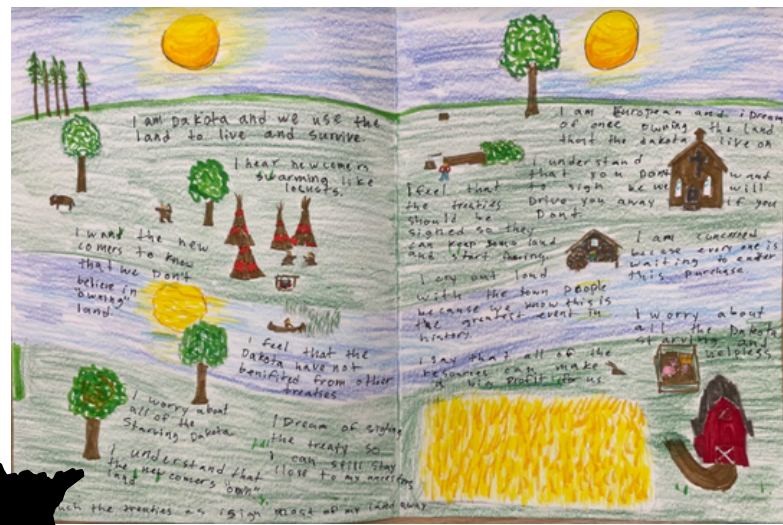 I am Dakota and we use the
land to live and survive.
I hear newcomers
swarming like
locusts.
I want the new
comers to know
that we Don't
believe in
"owning"
land.
I feel that the
Dakota have not
benifited from other
treaties
I worry about
all of the
Starving Dakota
I understand that
the newcomers "own"
land
I Dream of signing
the treaty so
I can still stay
close to my ancestors
the treaties as i sign most of my land away
I am European and i Dream
of once owning the land
that the dakota live on
i understand
that you Dont want
to sign but we will
Drive you away if you
Dont.
I feel that
the treaties
should be
signed so they
can keep some land
and start farming
I am concerned
because every one is
waiting to
this purchase.
I cry out loud
with the town people
because we know this is
the greatest event in
history
I worry about
all the Dakota
starving and
helpless
i say that all of the
resources can make
a big profit for us